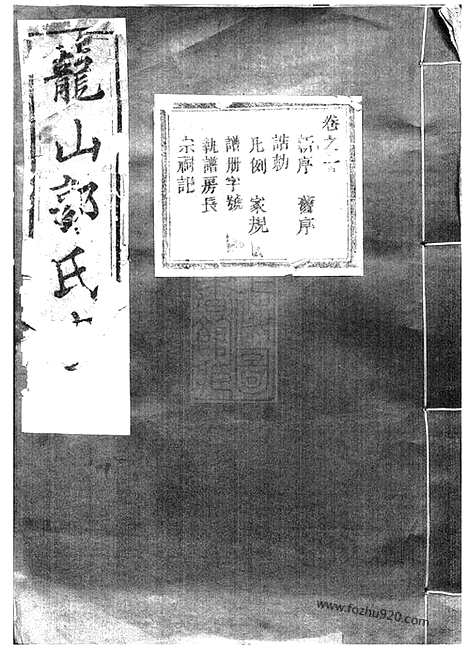 龍山郭氏
卷之首
新序 舊序
誥勅
凡例 家規
譜册字號
執譜房長
宗祠記
www.fozhu920.com